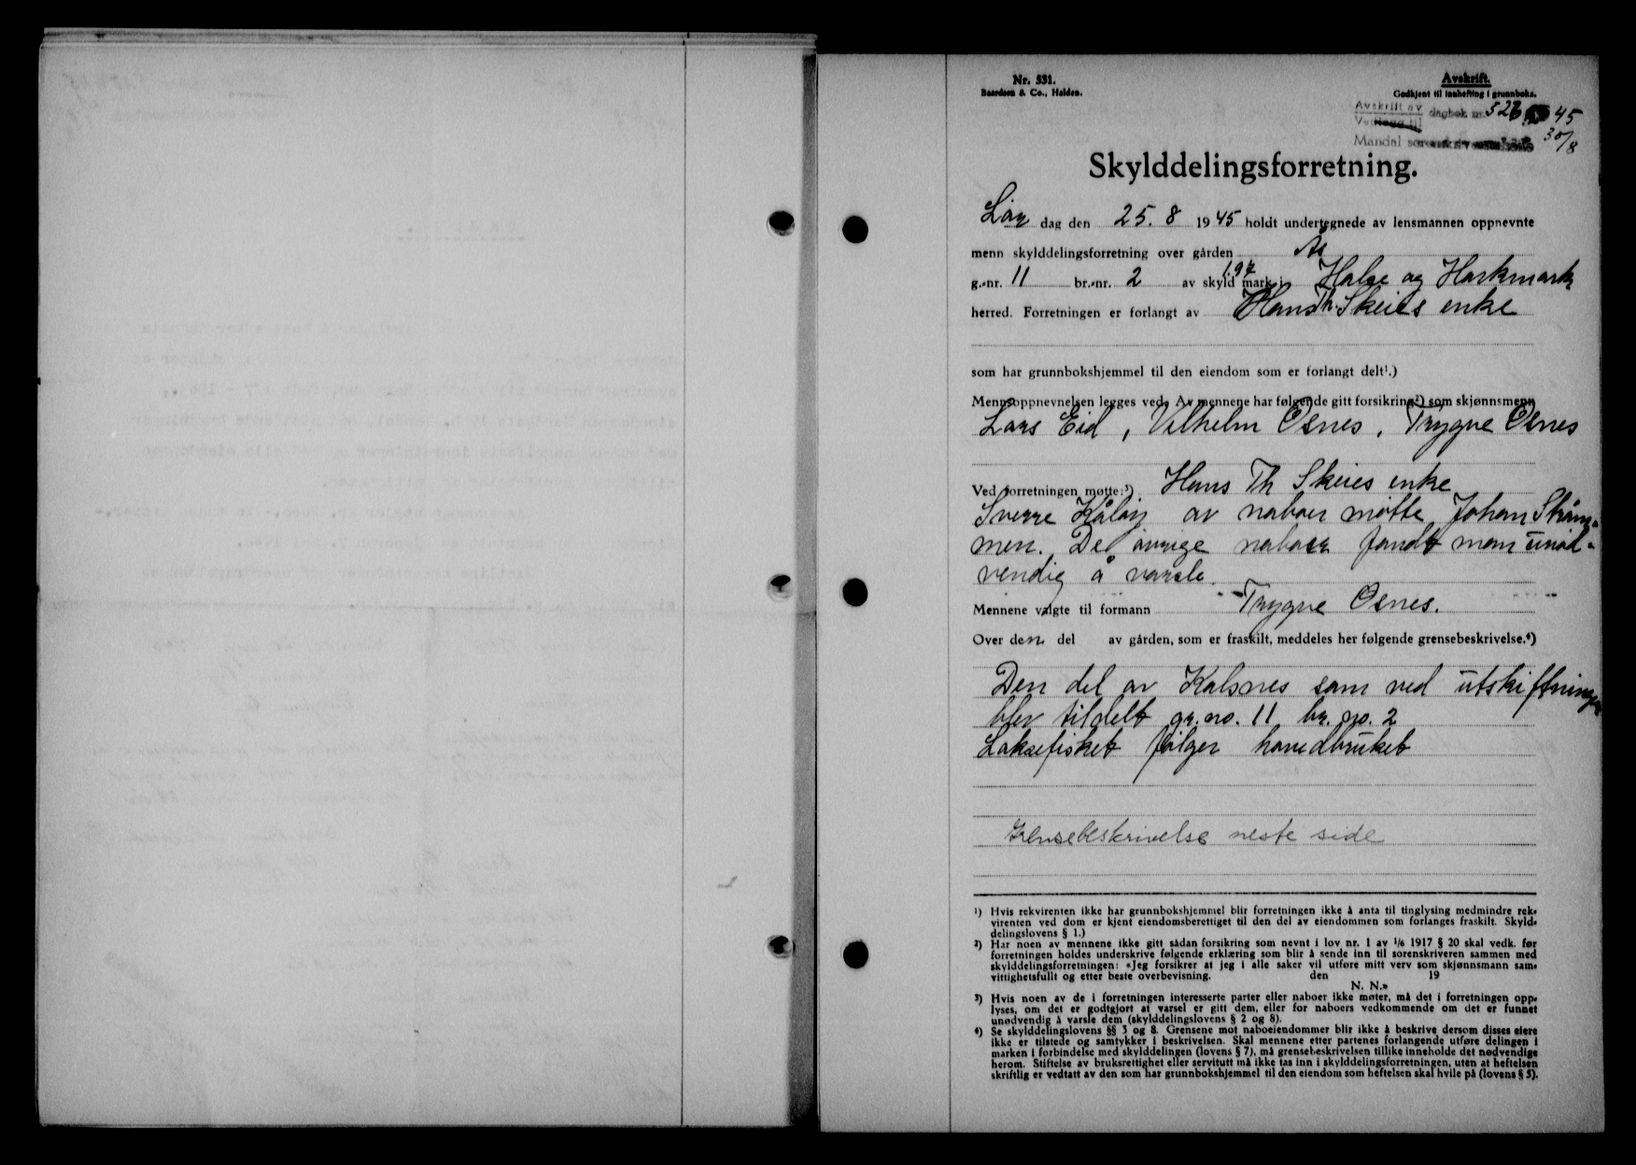 Nr. 531.
Baardsen & Co., Halden.
Avskrift.
Godkjent til innhefting i grunnboka.
Avskrift av
dagbok nr. 526 45
30/8
Mandal
Skylddelingsforretning.
Lør dag den 25. 8 1945 holdt undertegnede av lensmannen oppnevnte
menn skylddelingsforretning over gården Ås
g.-nr. 11 br.-nr. 2 av skyld mark 1.97 i Halse og Harkmark
herred. Forretningen er forlangt av Hans Th. Skeies enke
som har grunnbokshjemmel til den eiendom som er forlangt delt¹.)
Mennsoppnevnelsen legges ved. Av mennene har følgende gitt forsikring²) som skjønnsmenn
Lars Eid, Vilhelm Osnes, Trygve Osnes
Ved forretningen møtte:³) Hans Th Skeies enke
Sverre Kåløy av naboer møtte Johan Strøm-
men. De øvrige naboer fandt man unød-
vendig å varsle.
Mennene valgte til formann Trygve Osnes.
Over den del av gården, som er fraskilt, meddeles her følgende grensebeskrivelse.⁴)
Den del av Kalsnes som ved utskiftningen
blev tildelt gr. no. 11 br. no. 2
Laksefisket følger hovedbruket
Grensebeskrivelse neste side
¹) Hvis rekvirenten ikke har grunnbokshjemmel blir forretningen ikke å anta til tinglysing medmindre rek-
virenten ved dom er kjent eiendomsberettiget til den del av eiendommen som forlanges fraskilt. Skyld-
delingslovens § 1.)
²) Har noen av mennene ikke gitt sådan forsikring som nevnt i lov nr. 1 av 1/6 1917 § 20 skal vedk. før
forretningen holdes underskrive følgende erklæring som blir å sende inn til sorenskriveren sammen med
skylddelingsforretningen: «Jeg forsikrer at jeg i alle saker vil utføre mitt verv som skjønnsmann sam-
vittighetsfullt og etter beste overbevisning. den 19
N. N.»
³) Hvis noen av de i forretningen interesserte parter eller naboer ikke møter, må det i forretningen opp-
lyses, om det er godtgjort at varsel er gitt dem, eller for naboers vedkommende om det er funnet
unødvendig å varsle dem (skylddelingslovens § 2 og 8).
⁴) Se skylddelingslovens §§ 3 og 8. Grensene mot naboeiendommer blir ikke å beskrive dersom disses eiere
ikke er tilstede og samtykker i beskrivelsen. Skal mennene etter partenes forlangende utføre delingen i
marken i forbindelse med skylddelingen (lovens § 7), må grensebeskrivelsen tillike inneholde det nødvendige
herom. Stiftelse av bruksrettighet eller servitutt må ikke tas inn i skylddelingsforretningen, uten at heftelsen
skriftlig er vedtatt av den som har grunnbokshjemmel til den eiendom som heftelsen skal hvile på (lovens § 5).